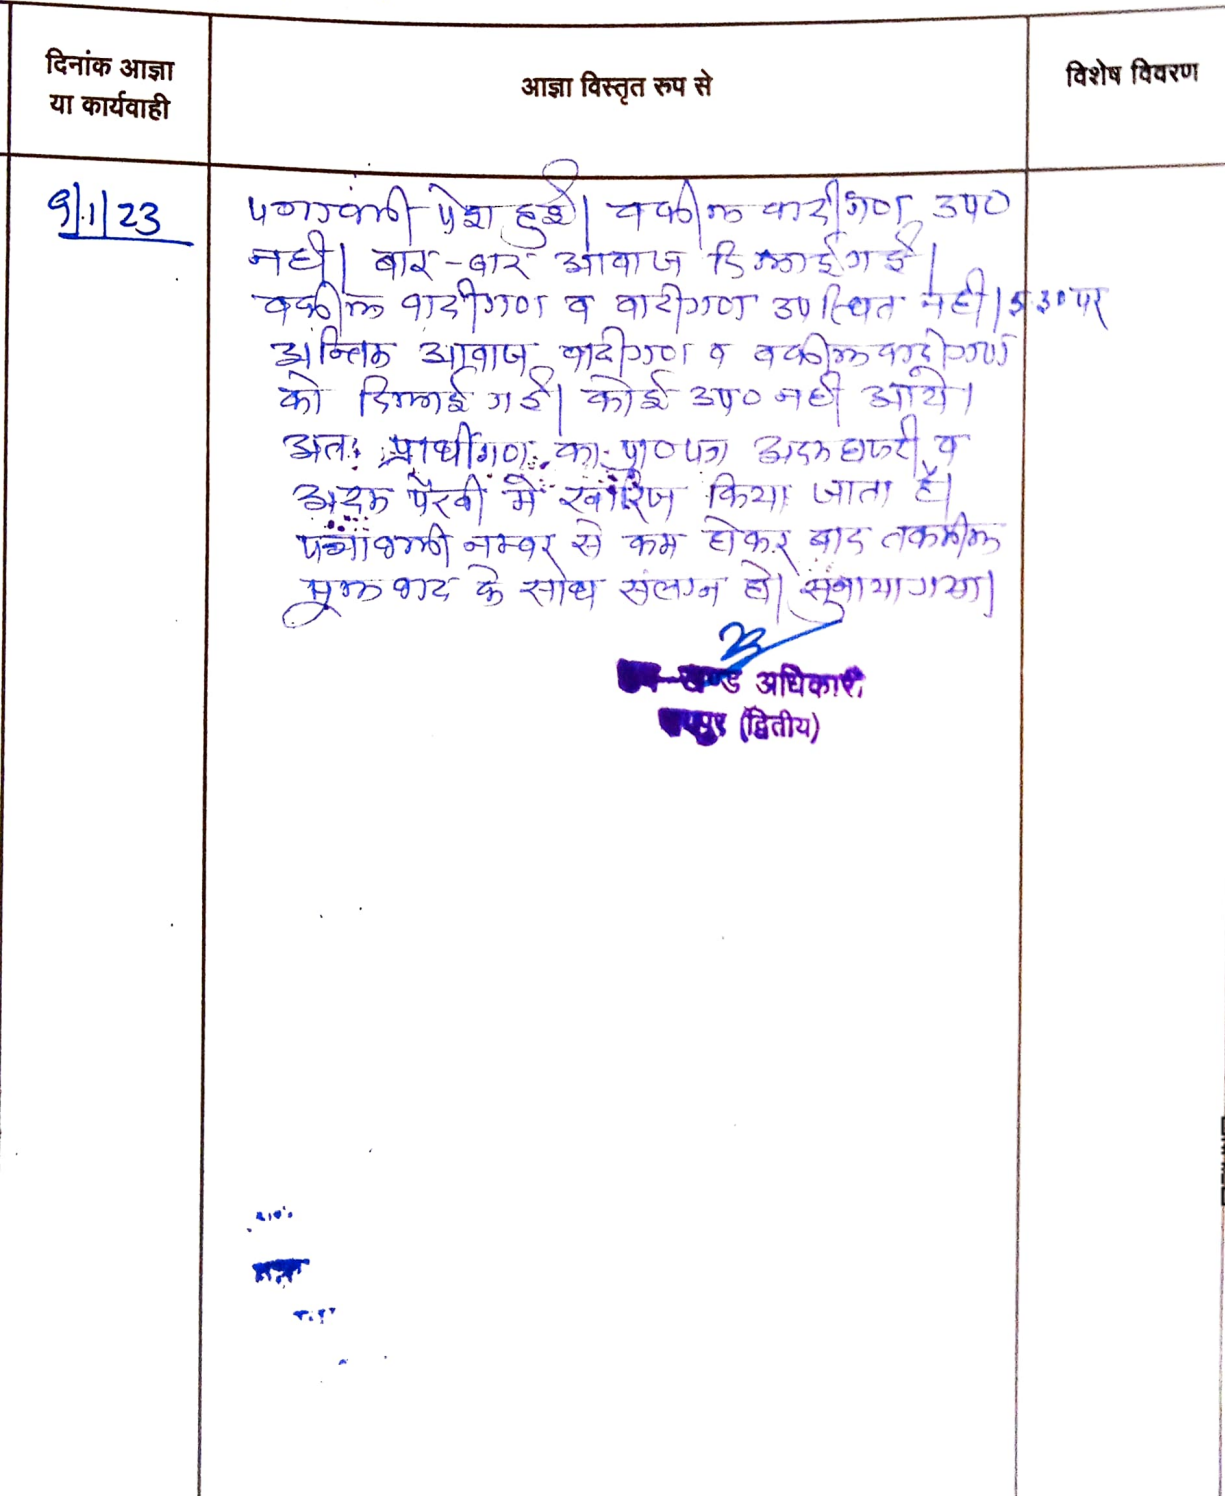 दिनांक आज्ञा
या कार्यवाही
आज्ञा विस्तृत रूप से
विशेष विवरण
9/1/23
पत्रावली पेश हुई। वकील वादीगण उप०
नही। बार-बार आवाज दिलाई गई।
वकील वादीगण व वादीगण उपस्थित नही। 5 30 पर
अन्तिम आवाज वादीगण व वकील वादीगण
को दिलाई गई। कोई उप० नही आये।
अतः प्रार्थीगण का प्रा० पत्र अदम हाजरी व
अदम पैरवी मे खारिज किया जाता है।
पत्रावली नम्बर से कम होकर बाद तकमील
मूल वाद के साथ संलग्न हो। सुनाया गया।
खण्ड अधिकारी
(द्वितीय)